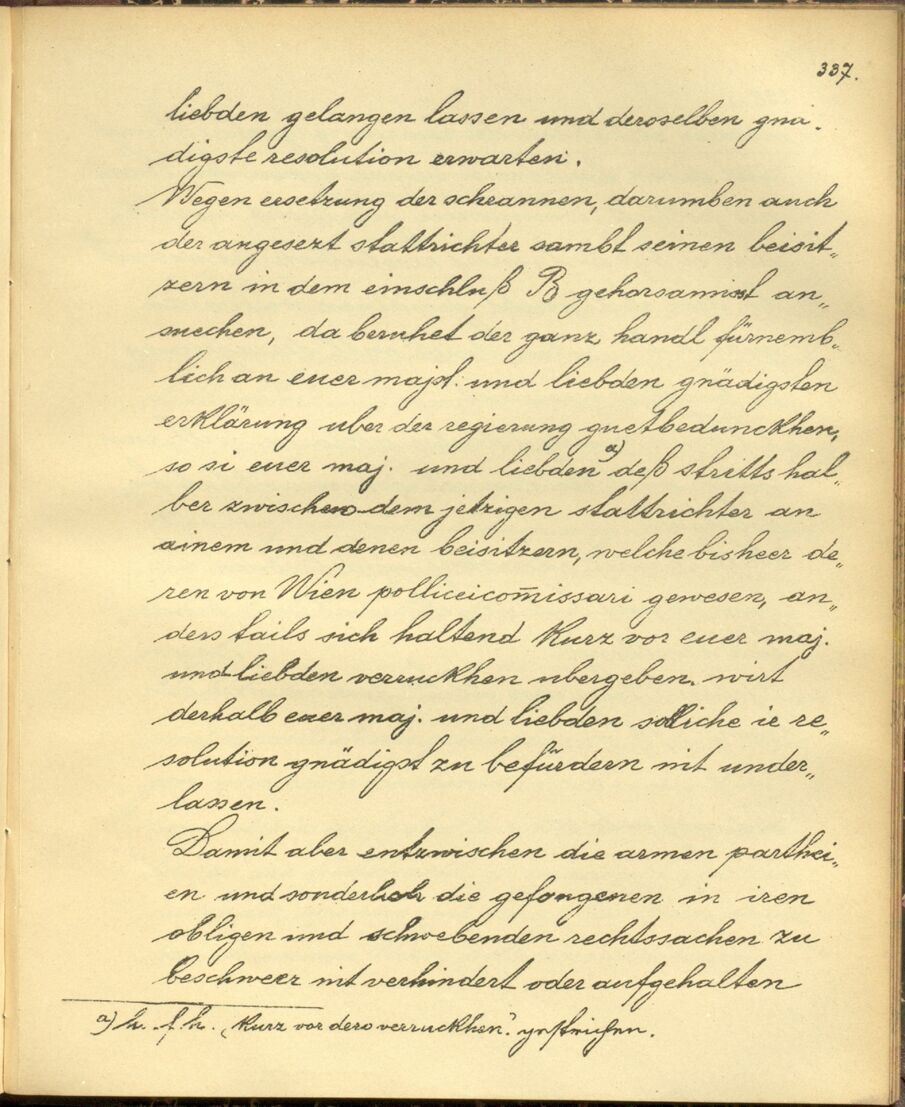 337.
liebden gelangen lassen und deroselben gnä„
digste resolution erwarten.
Wegen ersetzung der schrannen, darumben auch
der angesezt stattrichter sambt seinen beisit„
zern in dem einschluß B gehorsamist an„
suechen, da beruhet der ganz handl fürnemb„
lich an euer majst. und liebden gnädigsten
erklärung uber der regierung guetbedunckhen,
so si euer maj. und liebden a) deß stritts hal„
ber zwischen dem jetzigen stattrichter an
ainem und denen beisitzern, welche bisheer de„
ren von Wien polliceicom̄issari gewesen, an„
ders tails sich haltend kurz vor euer maj.
und liebden verruckhen ubergeben. wirt
derhalb euer maj. und liebden solliche ir re„
solution gnädigst zu befürdern nit under„
lassen.
Damit aber entzwischen die armen parthei„
en und sonderlich die gefangenen in iren
obligen und schwebenden rechtssachen zu
beschweer nit verhindert oder aufgehalten
a) h. f. h. „kurz vor dero verruckhen“ gestrichen.